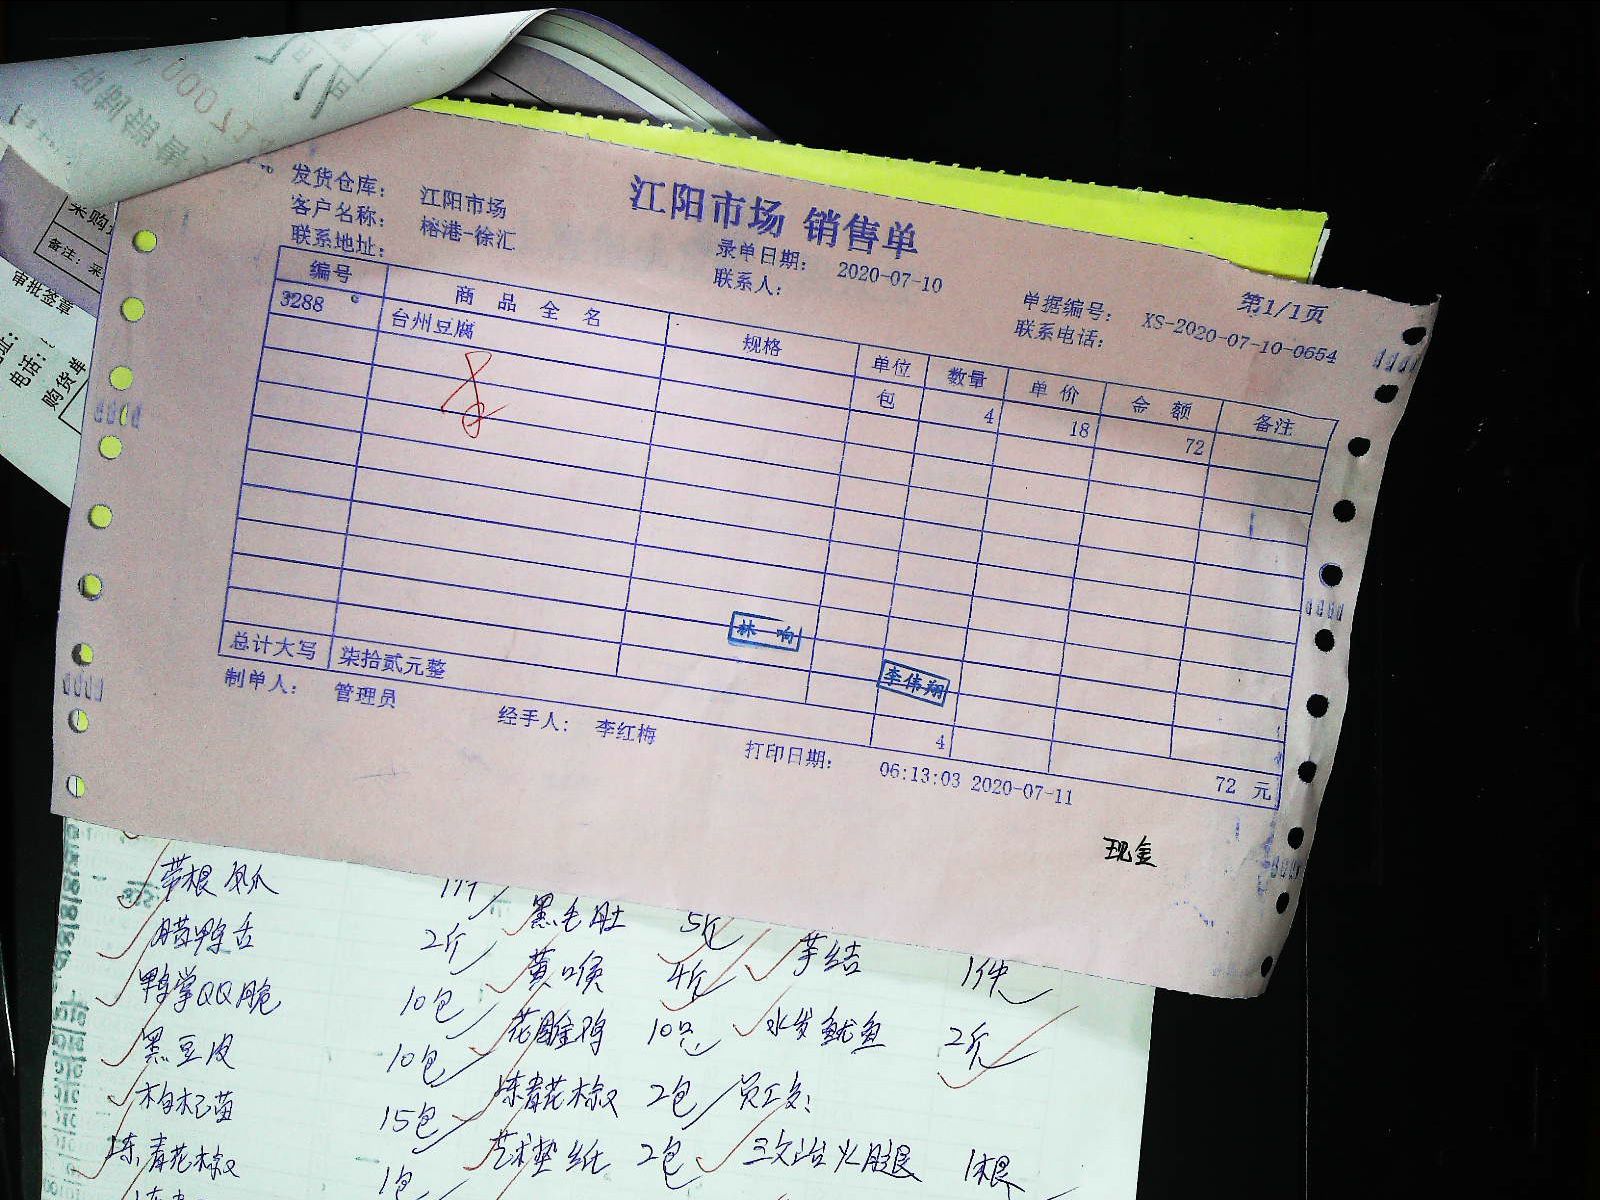 江阳市场 销售单
发货仓库： 江阳市场
客户名称： 榕港-徐汇 录单日期： 2020-07-10 单据编号： XS-2020-07-10-0654 第1/1页
联系地址： 联系人： 联系电话：
编号 商品全名 规格 单位 数量 单价 金额 备注
3288 台州豆腐 包 4 18 72
林响
李伟翔
总计大写 柒拾贰元整 4 72 元
制单人： 管理员 经手人： 李红梅 打印日期： 06:13:03 2020-07-11
现金
采购
备注：采
审批签章
电话：
购货单
带根 黑毛肚 5斤 芋结 1件
腊鸭舌 2斤 黄喉 4斤 水发鱿鱼 2斤
鸭掌QQ脆 10包 花雕鸡 10只
黑豆皮 10包 冻青花椒 2包 员工餐：
枸杞苗 15包 艺术垫纸 2包 三文治火腿 1根
冻青花椒 1包